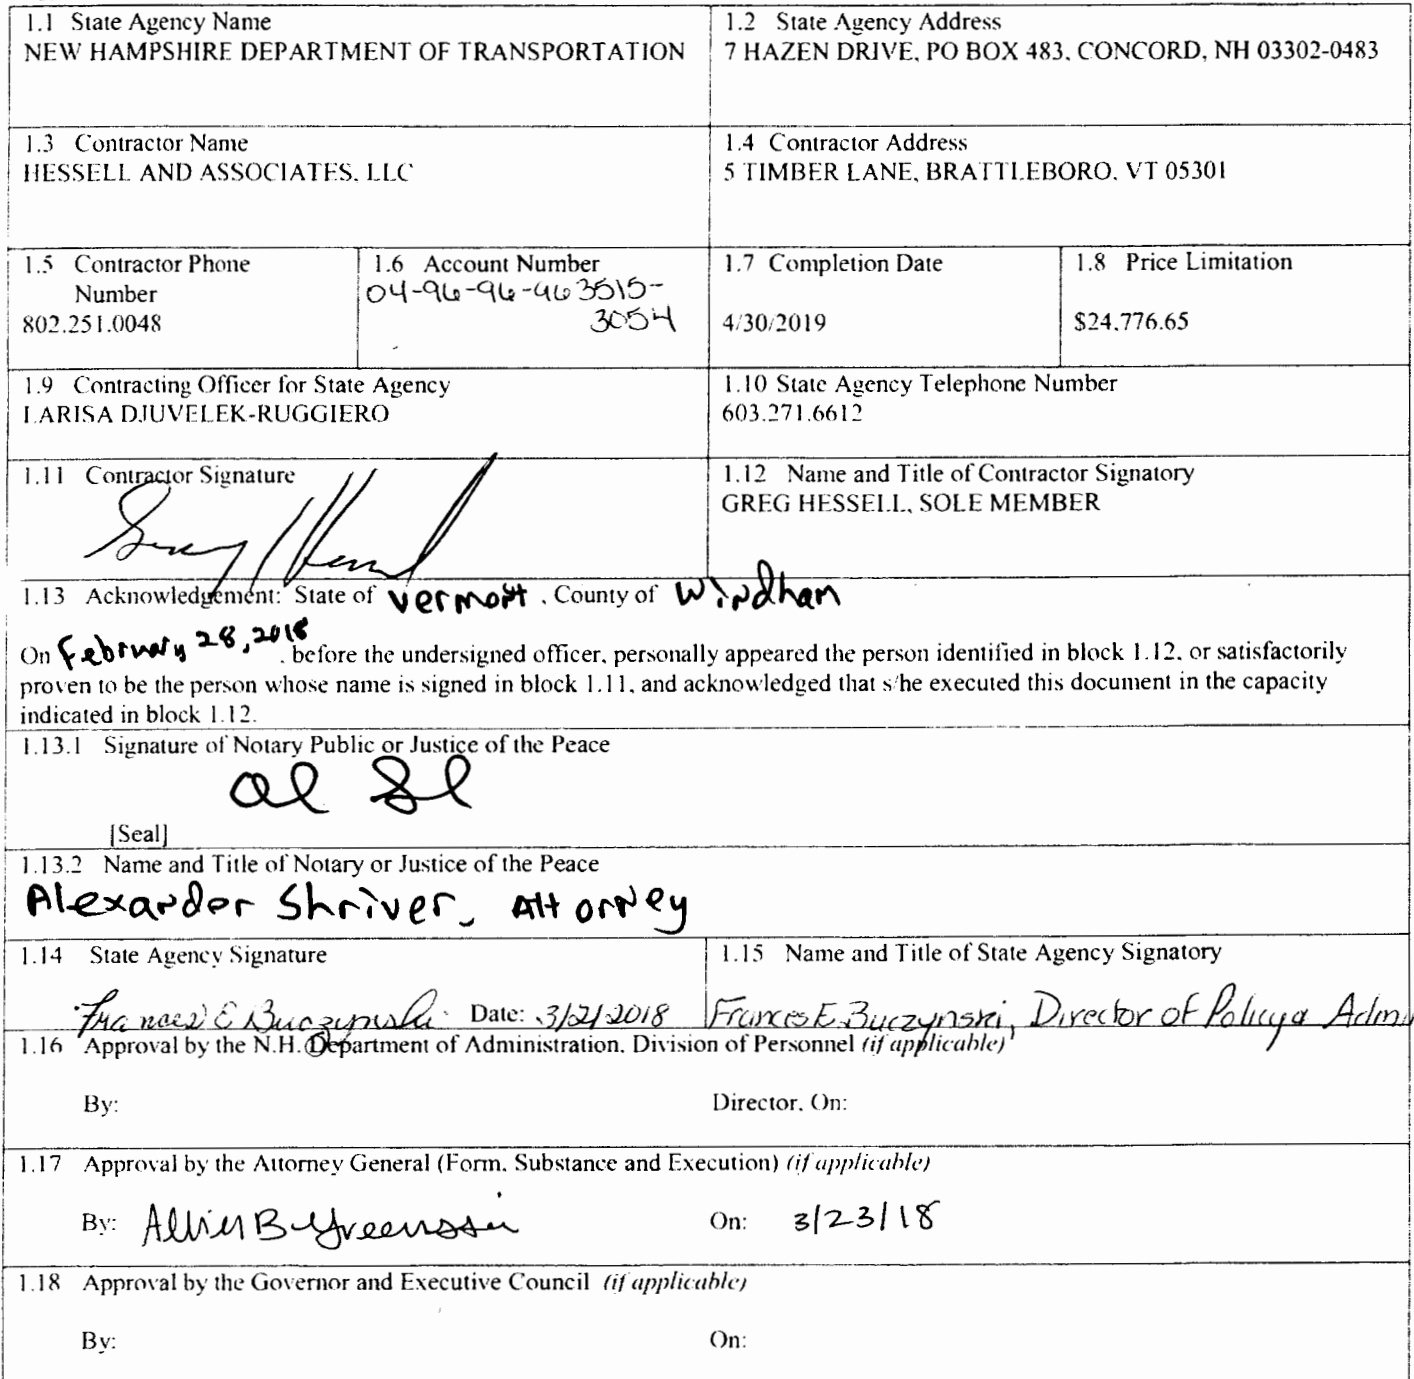 1.1 State Agency Name
NEW HAMPSHIRE DEPARTMENT OF TRANSPORTATION
1.2 State Agency Address
7 HAZEN DRIVE, PO BOX 483, CONCORD, NH 03302-0483
1.3 Contractor Name
HESSELL AND ASSOCIATES, LLC
1.4 Contractor Address
5 TIMBER LANE, BRATTLEBORO, VT 05301
1.5 Contractor Phone
Number
802.251.0048
1.6 Account Number
04-96-96-963515-
3054
1.7 Completion Date
4/30/2019
1.8 Price Limitation
$24,776.65
1.9 Contracting Officer for State Agency
LARISA DJUVELEK-RUGGIERO
1.10 State Agency Telephone Number
603.271.6612
1.11 Contractor Signature
1.12 Name and Title of Contractor Signatory
GREG HESSELL, SOLE MEMBER
1.13 Acknowledgement: State of Vermont, County of Windham
On February 28, 2018, before the undersigned officer, personally appeared the person identified in block 1.12, or satisfactorily
proven to be the person whose name is signed in block 1.11, and acknowledged that s/he executed this document in the capacity
indicated in block 1.12.
1.13.1 Signature of Notary Public or Justice of the Peace
[Seal]
1.13.2 Name and Title of Notary or Justice of the Peace
Alexander Shriver, Attorney
1.14 State Agency Signature
Frances E Buczynski Date: 3/2/2018
1.15 Name and Title of State Agency Signatory
Frances E. Buczynski, Director of Policy & Admin
1.16 Approval by the N.H. Department of Administration, Division of Personnel (if applicable)
By:
Director, On:
1.17 Approval by the Attorney General (Form, Substance and Execution) (if applicable)
By: Allison B Greenstein
On: 3/23/18
1.18 Approval by the Governor and Executive Council (if applicable)
By:
On: